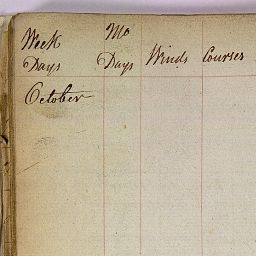 Week Mo
Days Days Winds Courses
October